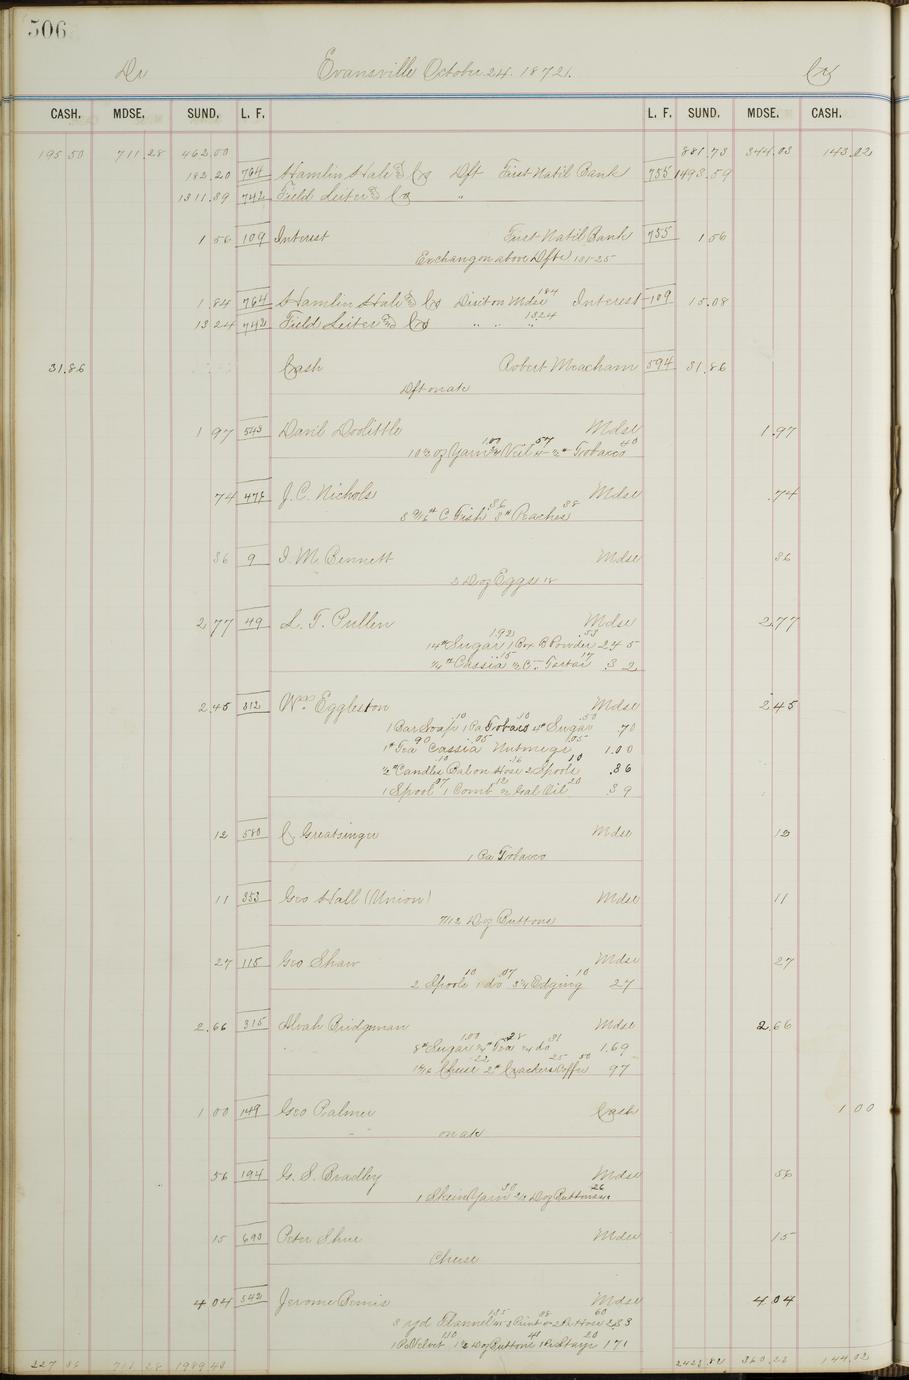 506
Dr Evansville October 24. 1872. Cr
CASH. MDSE. SUND. L. F. L. F. SUND. MDSE. CASH.
195.50 711.28 462.00 881.73 344.03 143.02
182.20 764 Hamlin Hale & Co Dft First Nat'l Bank 755 1493.59
1311.39 742 Field Leiter & Co "
1 56 109 Interest First Nat'l Bank 755 1 56
Exchang on above Dfts 131.25
1.84 764 Hamlin Hale & Co Disct on Mdse 184 Interest 109 15.08
13 24 742 Field Leiter & Co " " " 1324
31.86 Cash Robert Meacham 594 31.86
Dft on a/c
1 97 543 David Doolittle Mdse 1.97
Yarn Veil 57 Tobacco 40
74 J. C. Nichols Mdse .74
C Fish 36 Peaches 38
36 9 I. M. Bennett Mdse 36
2 Doz Eggs 18
2.77 49 L. T. Pullen Mdse 2.77
14# Sugar 192 1 Box B Powder 53 2 4 5
Cassia 15 C. Tartar 17 .3 2
2.45 312 Wm Eggleston Mdse 2 45
1 Bar Soap 10 1 Pa Tobaco 10 4# Sugar 50 .70
1# Tea 90 Cassia .05 Nutmegs .05 1.00
½# Candles 10 Bal on Hose 16 2 Spools 10 .36
1 Spool 07 1 Comb 12 ½ Gal Oil 20 3 9
12 580 C Greatsinger Mdse 12
1 Pa Tobacco
11 353 Geo Hall (Union) Mdse 11
7/12 Doz Buttons
27 115 Geo Shaw Mdse 27
2 Spools 10 1 do 07 Edging 10 27
2.66 315 Alvah Bridgman Mdse 2.66
8# Sugar 1.00 Tea 38 do 31 1.69
Cheese 22 2# Crackers 25 Coffee 50 97
1 00 149 Geo Palmer Cash 1 00
on a/c
56 194 G. S. Bradley Mdse 56
1 Skein Yarn 30 Doz Buttons 26
15 693 Peter Shue Mdse 15
Cheese
4 04 542 Jerome Bemis Mdse 4.04
3 yd Flannel 135 Print 38 2 Pr Hose 60 2.33
1 Pc Velvet 110 Doz Buttons 41 1 Pr Stays 20 1 7 1
227 36 711 28 1989 40 2423.82 360.22 144.02